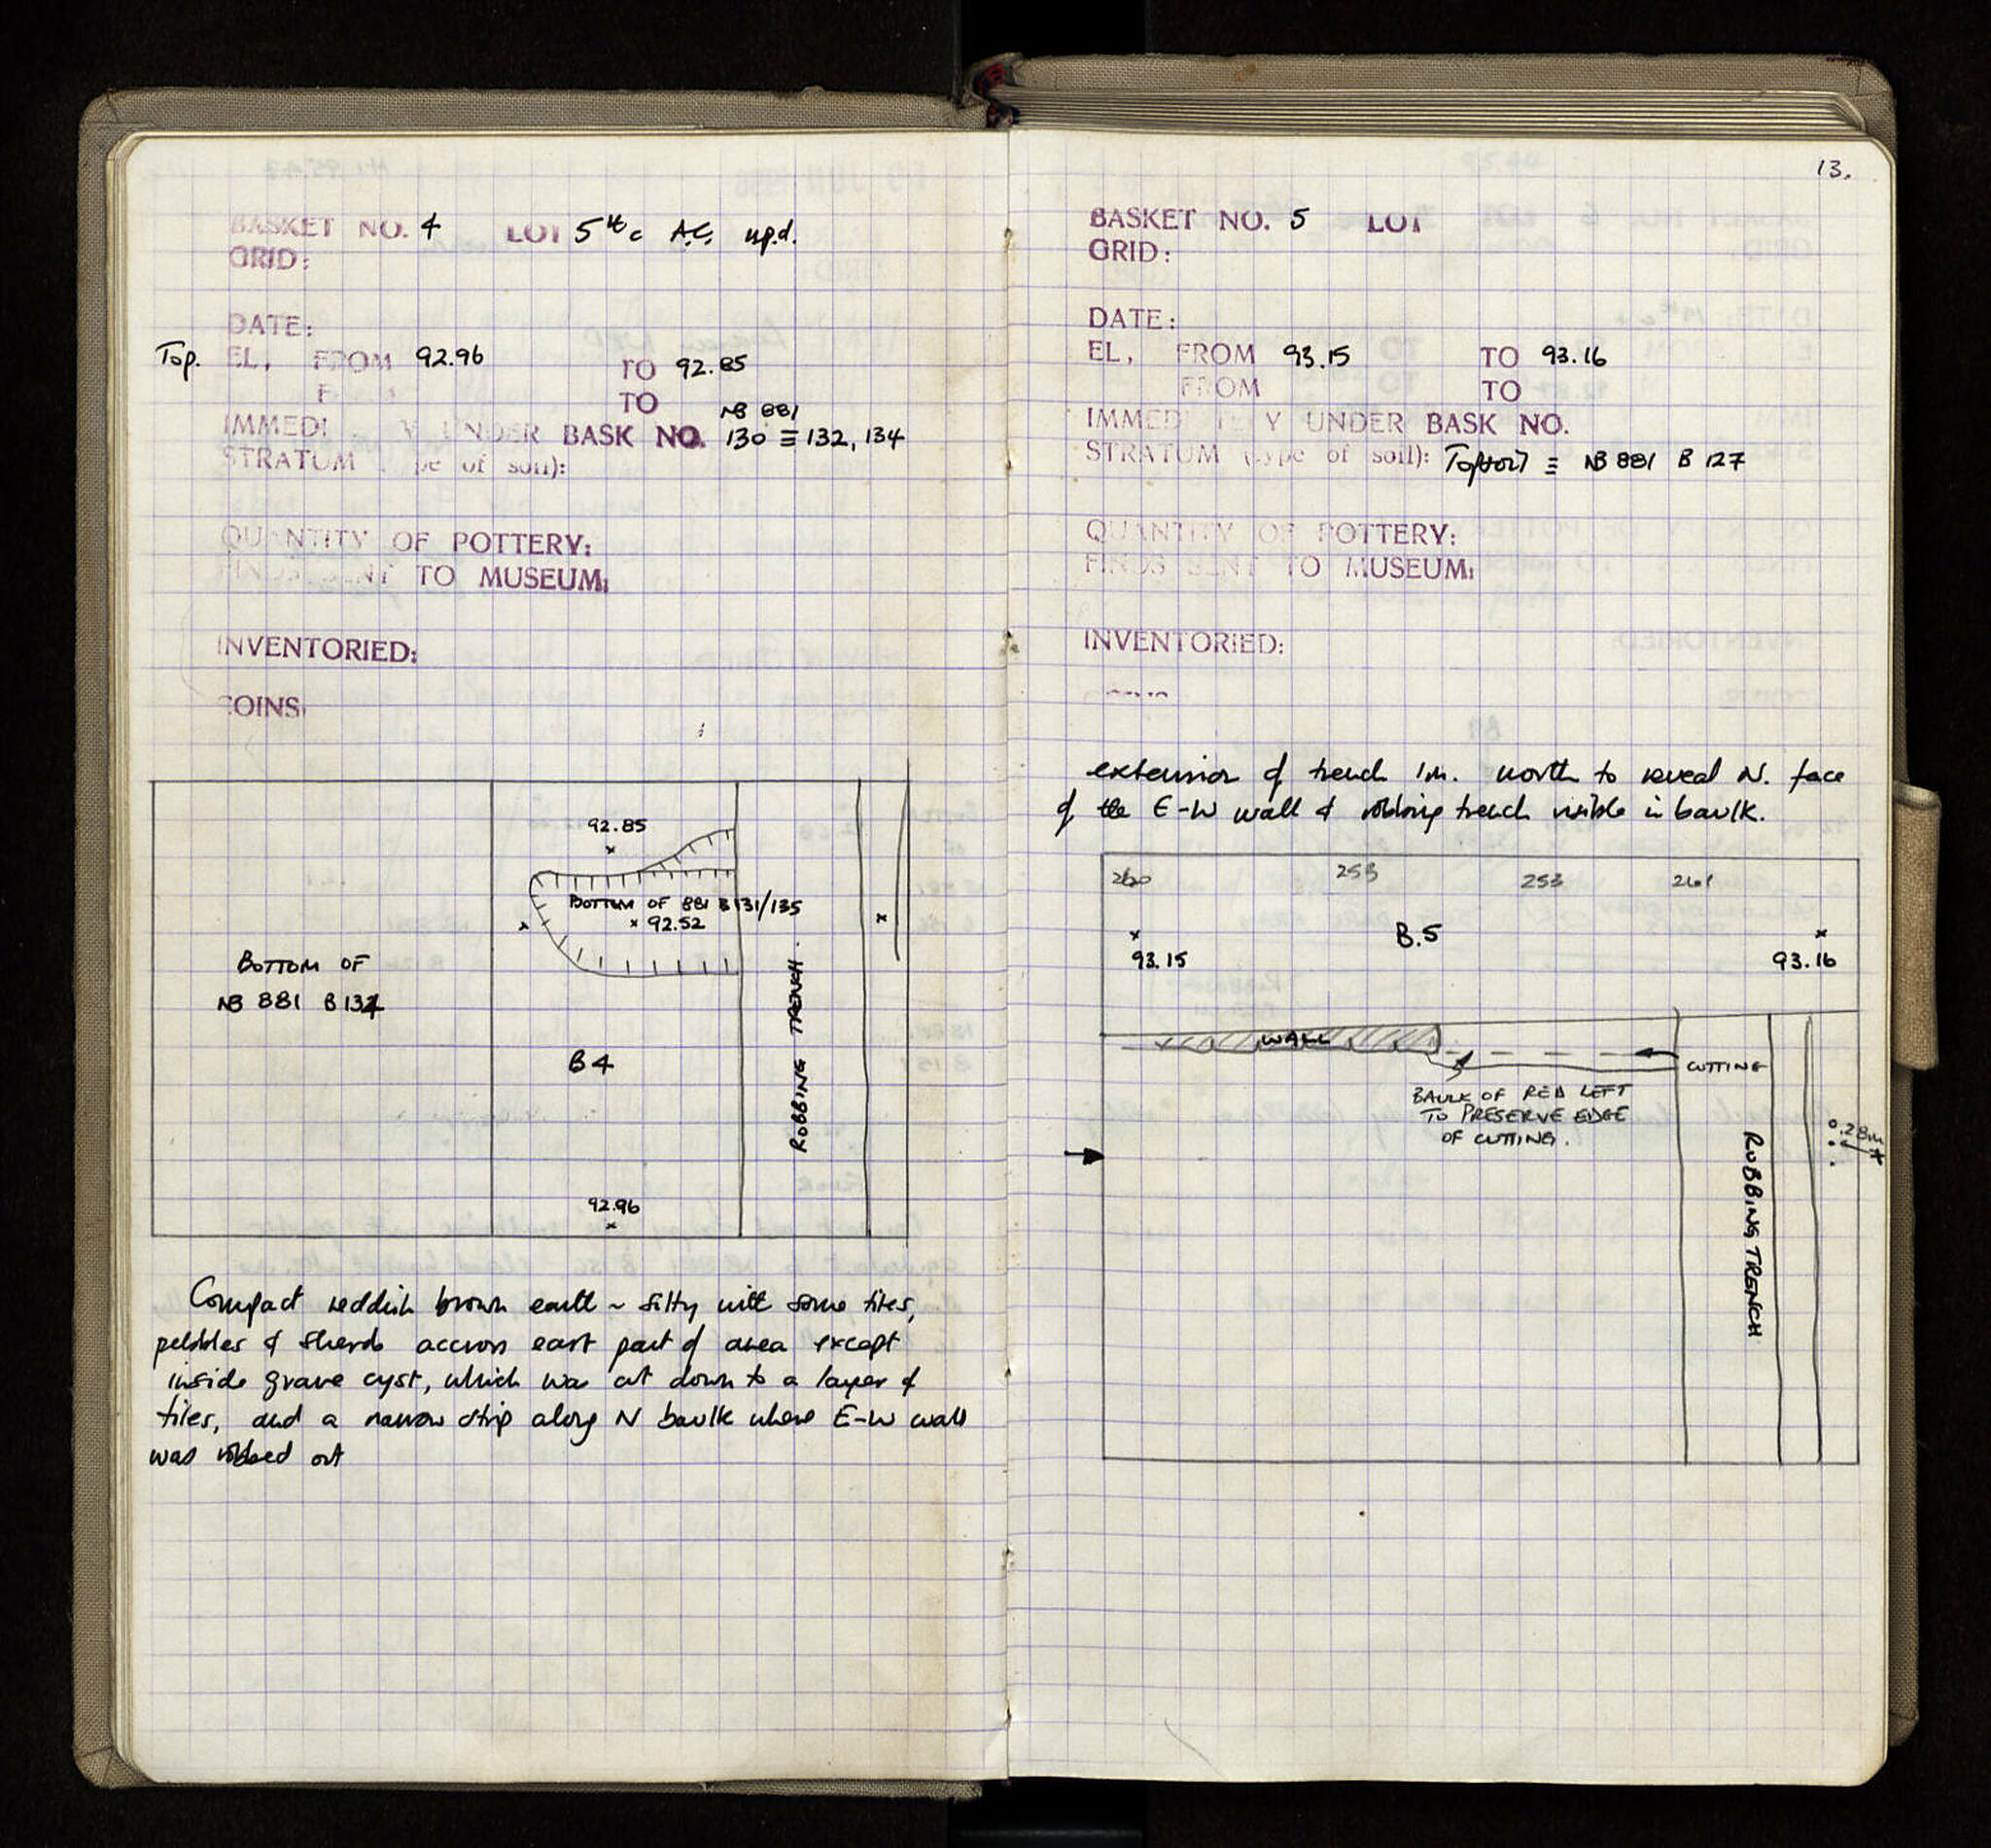 BASKET NO. 4 LOT 5th c A.C. np.d.
GRID:
DATE:
Top. EL, FROM 92.96 TO 92.85
TO
NB 881
IMMEDI Y UNDER BASK NO. 130 ≡ 132, 134
STRATUM pe of soil):
QUANTITY OF POTTERY:
FINDS SENT TO MUSEUM:
INVENTORIED:
COINS:
92.85
BOTTOM OF 881 B131/135
92.52
BOTTOM OF
NB 881 B 134
B4
ROBBING TRENCH.
92.96
Compact reddish brown earth ~ silty with some tiles,
pebbles & sherds accross east part of area except
inside grave cyst, which was cut down to a layer of
tiles, and a narrow strip along N baulk where E-W wall
was robbed out
13.
BASKET NO. 5 LOT
GRID:
DATE:
EL, FROM 93.15 TO 93.16
FROM TO
IMMED TE Y UNDER BASK NO.
STRATUM (type of soil): Topsoil ≡ NB 881 B 127
QUANTITY OF POTTERY:
FINDS SENT TO MUSEUM:
INVENTORIED:
extension of trench 1m. north to reveal N. face
of the E-W wall & robbing trench visible in baulk.
260 253 253 261
B.5
93.15 93.16
WALL
CUTTING
BAULK OF RED LEFT
TO PRESERVE EDGE
OF CUTTING.
0.28m
ROBBING TRENCH